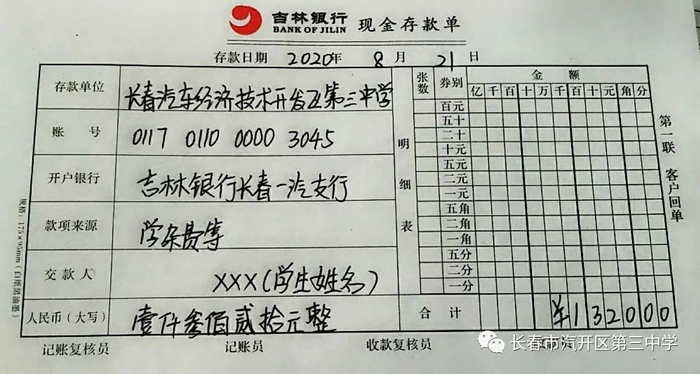 吉林银行
BANK OF JILIN
现金存款单
存款日期 2020年 8 月 21 日
存款单位 长春汽车经济技术开发区第三中学
账号 0117 0110 0000 3045
开户银行 吉林银行长春一汽支行
款项来源 学杂费等
交款人 XXX(学生姓名)
人民币(大写) 壹仟叁佰贰拾元整
明细表
张数 券别 金额
亿 千 百 十 万 千 百 十 元 角 分
百元
五十
二十
十元
五元
二元
一元
五角
二角
一角
五分
二分
一分
合计 ¥132000
第一联 客户回单
规格:175×95mm(白纸黑油墨)
记账复核员 记账员 收款复核员
长春市汽开区第三中学